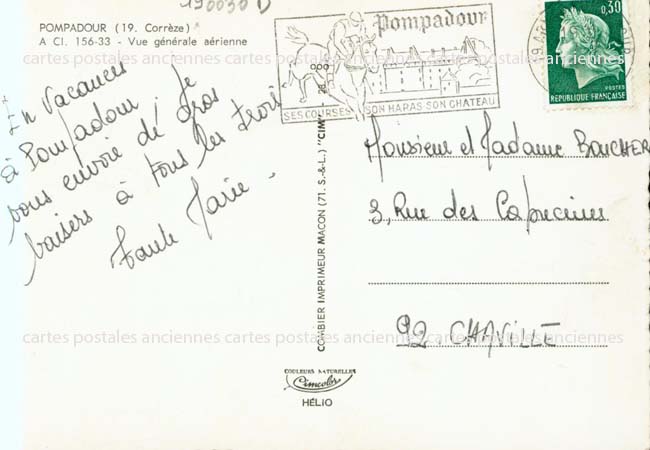 190030 D
POMPADOUR (19. Corrèze)
A CI. 156-33 - Vue générale aérienne
En Vacances
à Pompadour, je
vous envoie de gros
baisers à tous les trois
Tante Marie.
Pompadour
SES COURSES SON HARAS SON CHATEAU
0,30
POSTES
REPUBLIQUE FRANÇAISE
Monsieur et Madame BOUCHER
3, Rue des Capucines
92 CHAVILLE
COMBIER IMPRIMEUR MACON (71. S.-&-L.) "CIM"
COULEURS NATURELLES
Cimcolor
HÉLIO
cartes postales anciennes cartes postales anciennes cartes postales anciennes
cartes postales anciennes cartes postales anciennes cartes postales anciennes